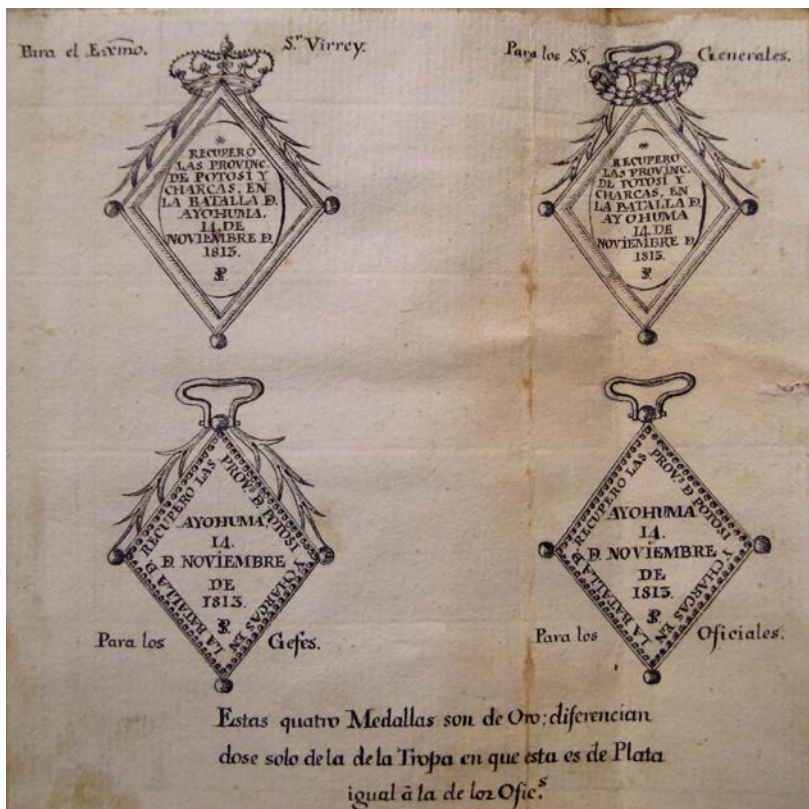 Para el Exmo. Sr. Virrey.
RECUPERO
LAS PROVINC.
DE POTOSI Y
CHARCAS, EN
LA BATALLA D.
AYOHUMA.
14. DE
NOVIEMBRE D.
1813.
Para los SS. Generales.
RECUPERO
LAS PROVINC.
DE POTOSI Y
CHARCAS, EN
LA BATALLA D.
AYOHUMA
14. DE
NOVIEMBRE D.
1813.
RECUPERO LAS PROVS. D. POTOSI Y CHARCAS EN LA BATALLA D.
AYOHUMA.
14.
D. NOVIEMBRE
DE
1813.
Para los Gefes.
RECUPERO LAS PROVS. D. POTOSI Y CHARCAS EN LA BATALLA D.
AYOHUMA
14.
D. NOVIEMBRE
DE
1813.
Para los Oficiales.
Estas quatro Medallas son de Oro; diferencian
dose solo de la de la Tropa en que esta es de Plata
igual â la de los Ofics.